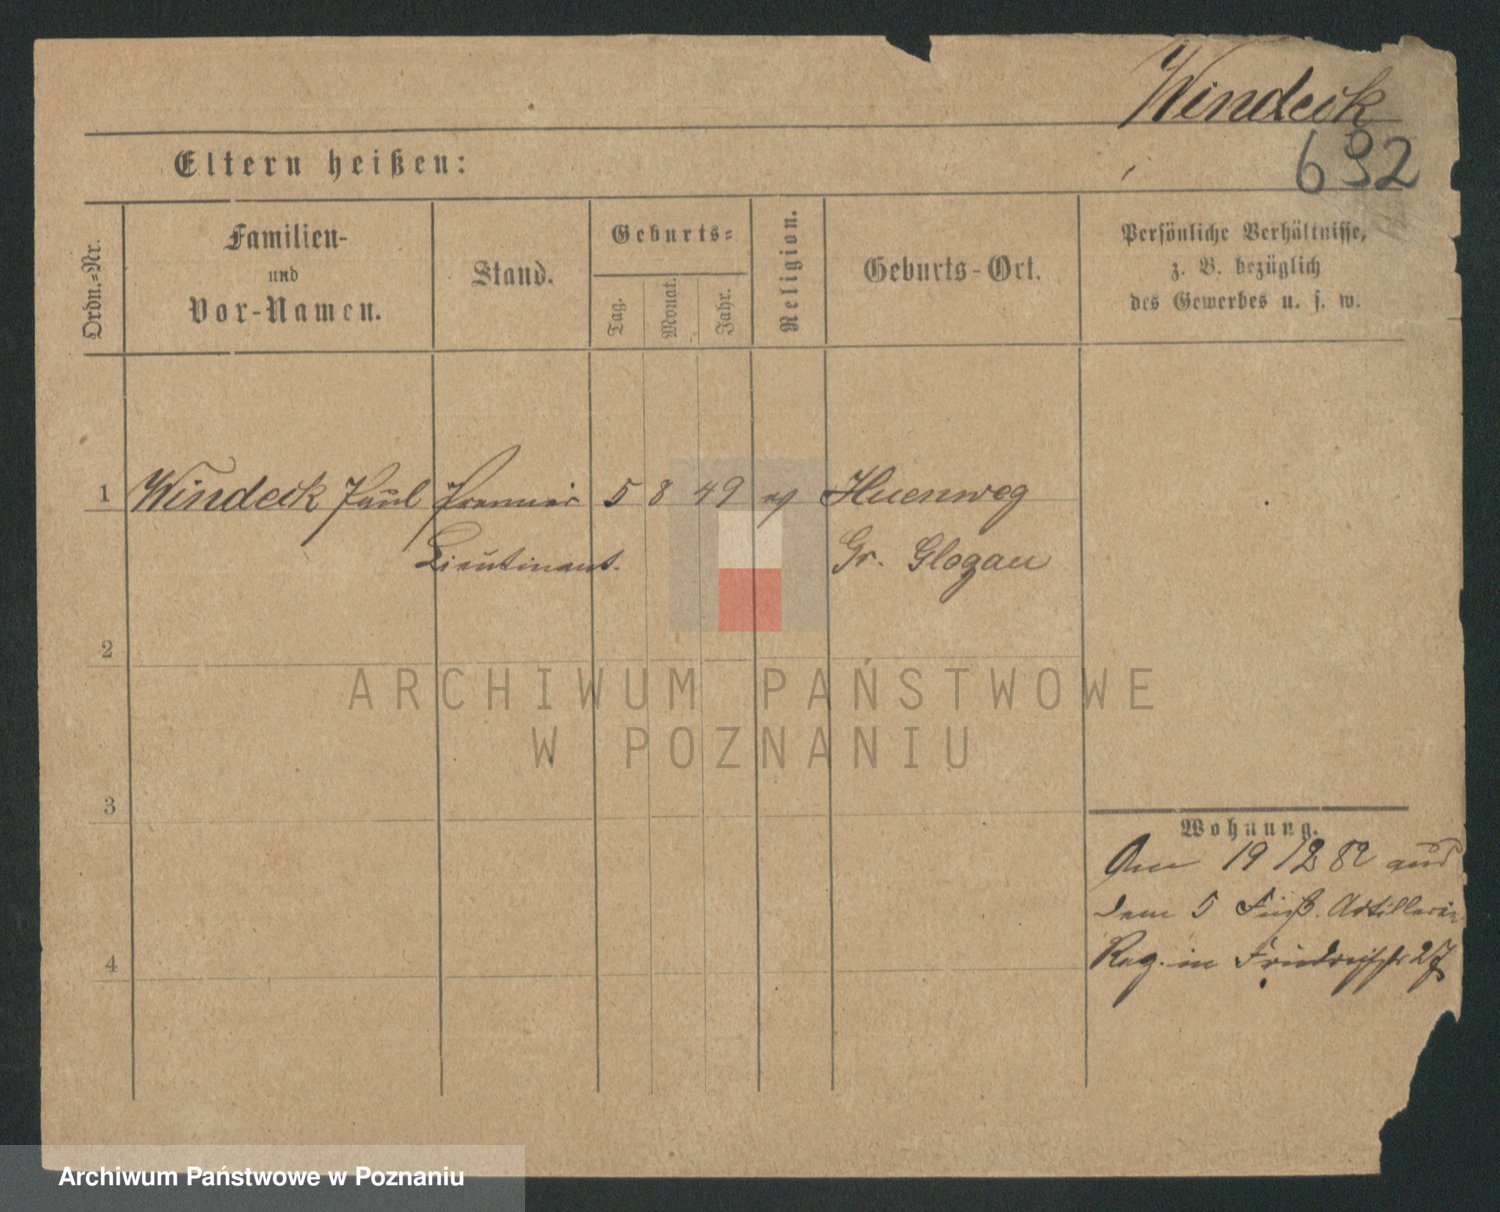 Windeck
632
Eltern heißen:
Ordn.-Nr.
Familien-
und
Vor-Namen.
Stand.
Geburts-
Tag.
Monat.
Jahr.
Religion.
Geburts-Ort.
Persönliche Verhältnisse,
z. B. bezüglich
des Gewerbes u. s. w.
1 Windeck Paul Premier 5 8 49 eg
Lieutinant. Gr. Glogau
2
ARCHIWUM PAŃSTWOWE
W POZNANIU
3
Wohnung.
Am 19 12 82 aus
dem 5 Fuß. Artillerie
4
Reg. in 27
Archiwum Państwowe w Poznaniu